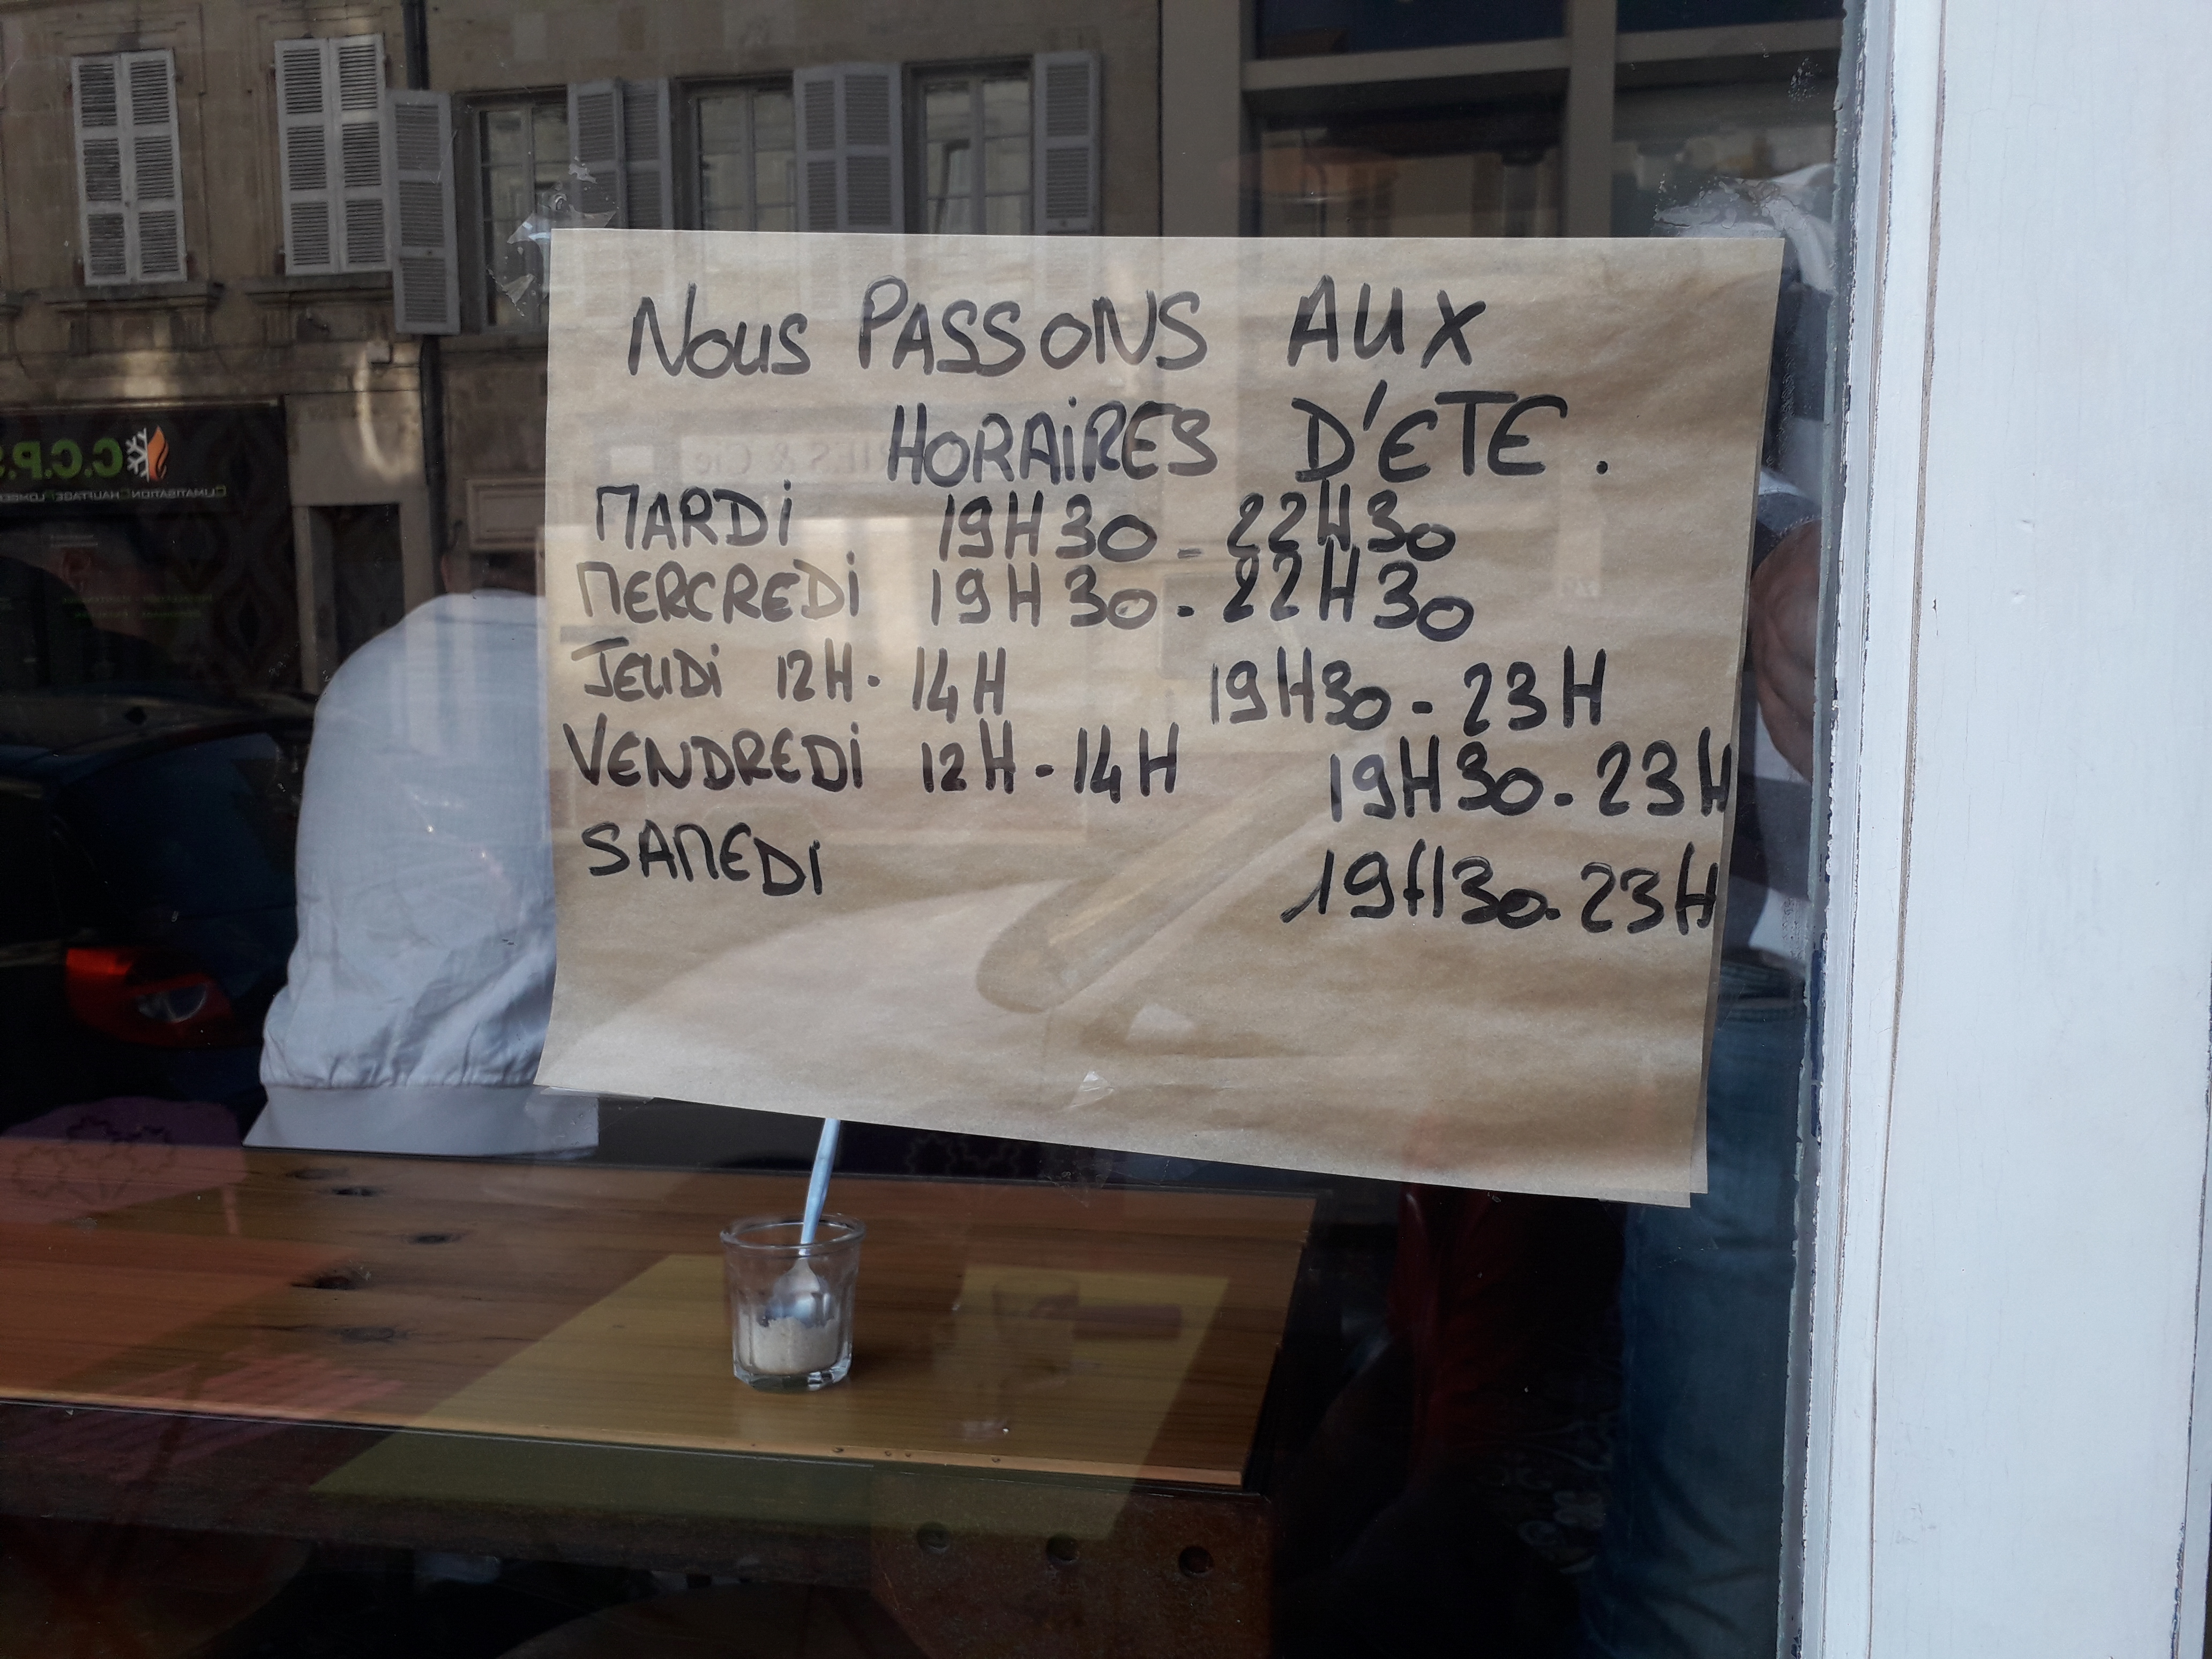 Nous PASSONS AUX
HORAiRES D'ETE.
MARDi 19H30 - 22H30
MERCREDi 19H30 - 22H30
JEUDi 12H - 14H 19H30 - 23H
VENDREDi 12H - 14H 19H30 - 23H
SAMEDi 19H30 - 23H
C.C.P.S
CLIMATISATION CHAUFFAGE PLOMBERIE